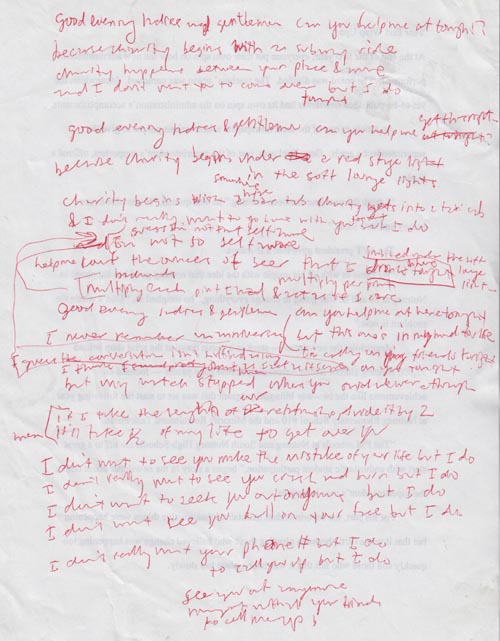 good evening ladies and gentlemen can you help me out tonight?
because charity begins with a subway ride
charity happens between your place & mine
and I don't want you to come over but I do
tonight
good evening ladies & gentlemen can you help me out tonight?
get this right
because charity begins under a red stage light
in the soft lounge lights
something
here
charity begins with a bar tab charity gets into a taxi cab
& I don't really want to go home with you but I do
guess I'm not that self aware
I'm not so self aware
help me count the ounces of beer that I drank tonight
under the soft
lounge
light
backwards
multiply each pint I had & set as if I care
multiply per pint
good evening ladies & gentlemen can you help me out here tonight
I never remember an anniversary but this was in my mind for life
I guess the conversation isn't
I'm calling on my friends tonight
I think
on you tonight
but my watch stopped when you said we're through
our
it'll take the length of relationship divided by 2
men
it'll take ½ of my life to get over you
I don't want to see you make the mistake of your life but I do
I don't really want to see you crash and burn but I do
I don't want to seek you out anymore but I do
I don't want see you fall on your face but I do
I don't really want your phone # but I do
to call you up but I do
see you out anymore
might with all your friends
to call me up